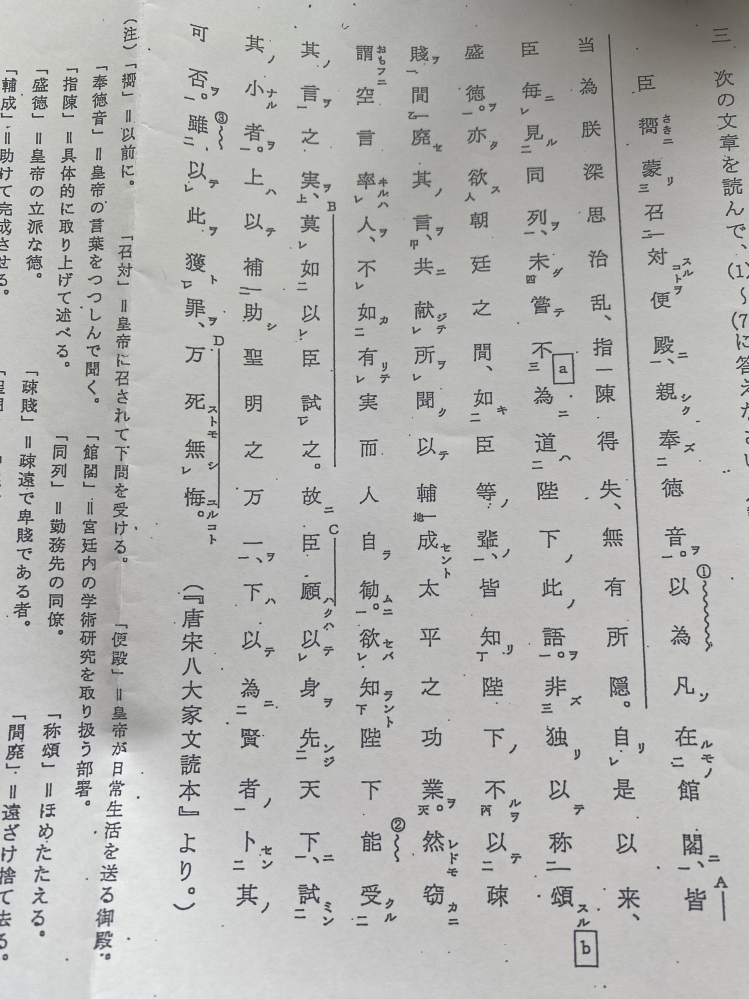 三　次の文章を読んで、(1)〜(7)に答えなさい
臣嚮蒙召対便殿、親奉徳音。以為凡在館閣、皆
当為朕深思治乱、指陳得失、無有所隠。自是以来、
臣毎見同列、未嘗不為道陛下此語。非独以称頌
盛徳。亦欲朝廷之間、如臣等輩、皆知陛下不以疎
賤間廃其言、共献所聞以輔成太平之功業。然窃
謂空言率人、不如有実而人自勧。欲知陛下能受
其言之実、莫如以臣試之。故臣願以身先天下、試
其小者。上以補助聖明之万一、下以為賢者卜其
可否。雖以此獲罪、万死無悔。
（『唐宋八大家文読本』より。）
（注）「嚮」＝以前に。　「召対」＝皇帝に召されて下問を受ける。　「便殿」＝皇帝が日常生活を送る御殿。
「奉徳音」＝皇帝の言葉をつつしんで聞く。　「館閣」＝宮廷内の学術研究を取り扱う部署。
「指陳」＝具体的に取り上げて述べる。　「同列」＝勤務先の同僚。　「称頌」＝ほめたたえる。
「盛徳」＝皇帝の立派な徳。　「疎賤」＝疎遠で卑賤である者。　「間廃」＝遠ざけ捨て去る。
「輔成」＝助けて完成させる。